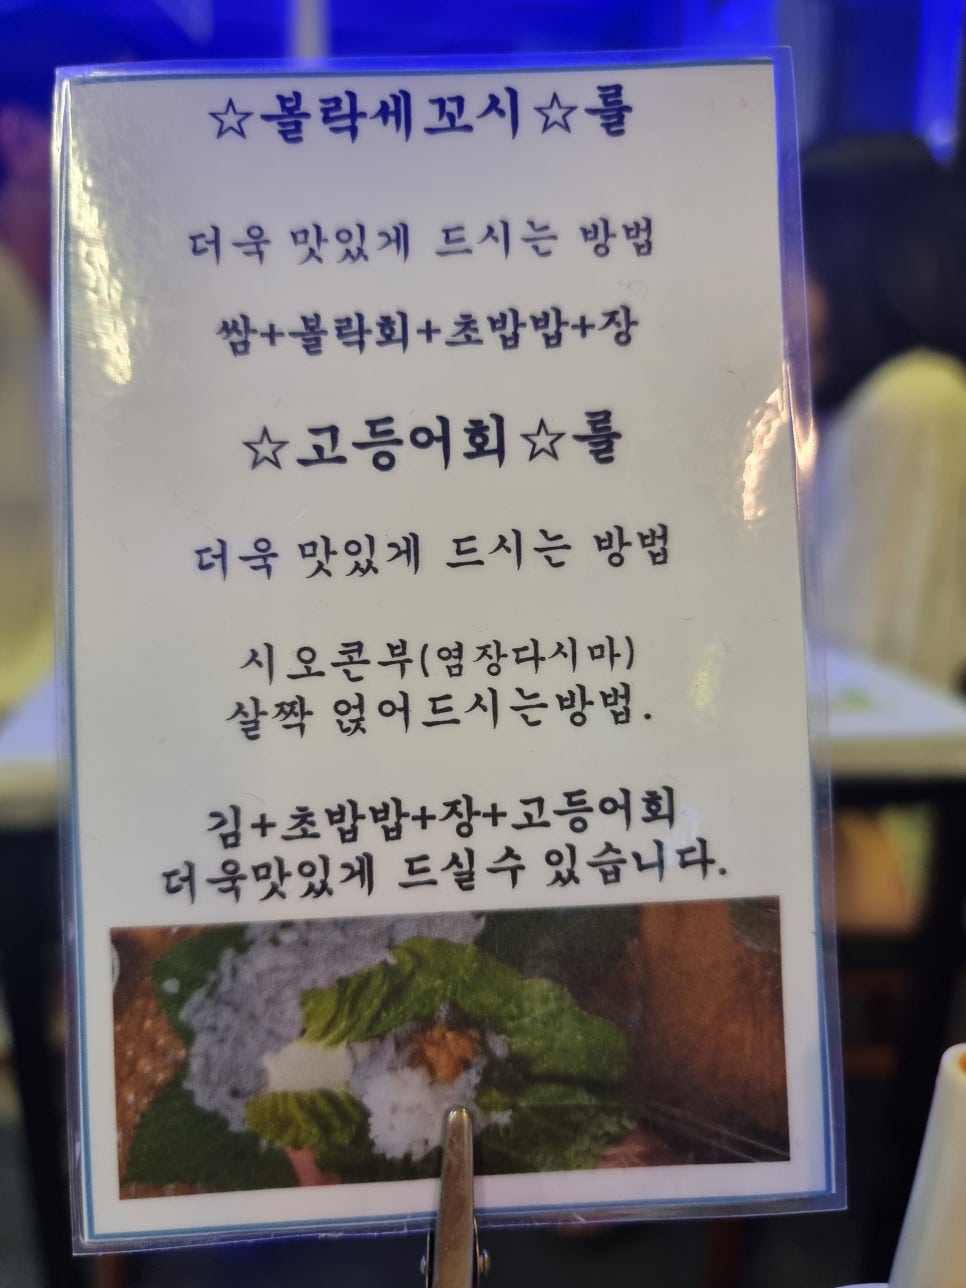 ☆볼락세꼬시☆를
더욱 맛있게 드시는 방법
쌈+볼락회+초밥밥+장
☆고등어회☆를
더욱 맛있게 드시는 방법
시오콘부(염장다시마)
살짝 얹어드시는방법.
김+초밥밥+장+고등어회
더욱맛있게 드실수 있습니다.